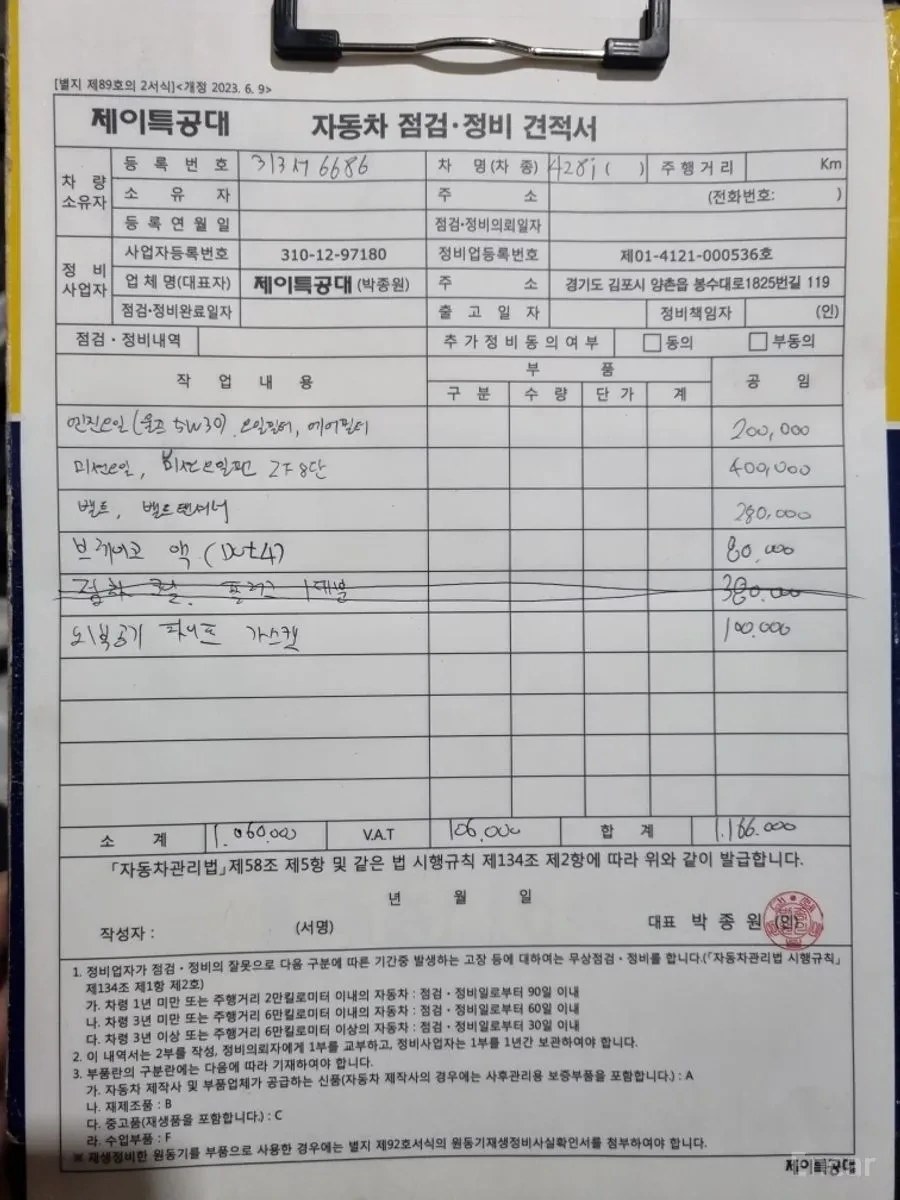 [별지 제89호의 2서식]<개정 2023. 6. 9>
제이특공대 자동차 점검·정비 견적서
차량 소유자
등 록 번 호 313서 6686 차 명(차 종) 428i ( ) 주 행 거 리 Km
소 유 자 주 소 (전화번호: )
등 록 연 월 일 점검·정비의뢰일자
정비 사업자
사업자등록번호 310-12-97180 정비업등록번호 제01-4121-000536호
업 체 명(대표자) 제이특공대 (박종원) 주 소 경기도 김포시 양촌읍 봉수대로1825번길 119
점검·정비완료일자 출 고 일 자 정비책임자 (인)
점검 · 정비내역 추 가 정 비 동 의 여 부 □동의 □부동의
작 업 내 용 부 품 공 임
구 분 수 량 단 가 계
엔진오일 (울프 5W30) 오일필터, 에어필터 200,000
미션오일, 미션오일팬 ZF8단 400,000
벨트, 벨트텐셔너 280,000
브레이크 액 (Dot4) 80,000
점화 코일, 플러그 1대분 380,000
가스켓 100,000
소 계 1,060,000 V.A.T 106,000 합 계 1,166,000
「자동차관리법」제58조 제5항 및 같은 법 시행규칙 제134조 제2항에 따라 위와 같이 발급합니다.
년 월 일
작성자 : (서명) 대표 박 종 원 (인)
1. 정비업자가 점검·정비의 잘못으로 다음 구분에 따른 기간중 발생하는 고장 등에 대하여는 무상점검·정비를 합니다.(「자동차관리법 시행규칙」
제134조 제1항 제2호)
가. 차령 1년 미만 또는 주행거리 2만킬로미터 이내의 자동차 : 점검·정비일로부터 90일 이내
나. 차령 3년 미만 또는 주행거리 6만킬로미터 이내의 자동차 : 점검·정비일로부터 60일 이내
다. 차령 3년 이상 또는 주행거리 6만킬로미터 이상의 자동차 : 점검·정비일로부터 30일 이내
2. 이 내역서는 2부를 작성, 정비의뢰자에게 1부를 교부하고, 정비사업자는 1부를 1년간 보관하여야 합니다.
3. 부품란의 구분란에는 다음에 따라 기재하여야 합니다.
가. 자동차 제작사 및 부품업체가 공급하는 신품(자동차 제작사의 경우에는 사후관리용 보증부품을 포함합니다.) : A
나. 재제조품 : B
다. 중고품(재생품을 포함합니다.) : C
라. 수입부품 : F
※ 재생정비한 원동기를 부품으로 사용한 경우에는 별지 제92호서식의 원동기재생정비사실확인서를 첨부하여야 합니다.
제이특공대